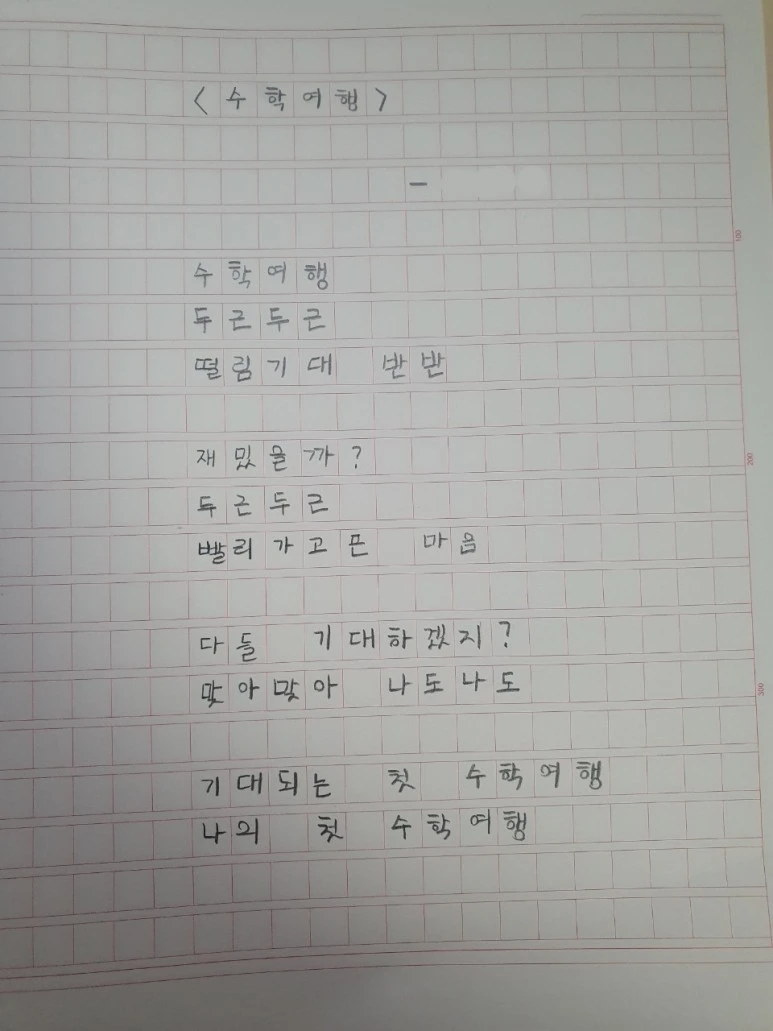 <수학여행>
-
수학여행
두근두근
떨림기대 반반
재밌을까?
두근두근
빨리가고픈 마음
다들 기대하겠지?
맞아맞아 나도나도
기대되는 첫 수학여행
나의 첫 수학여행
100
200
300